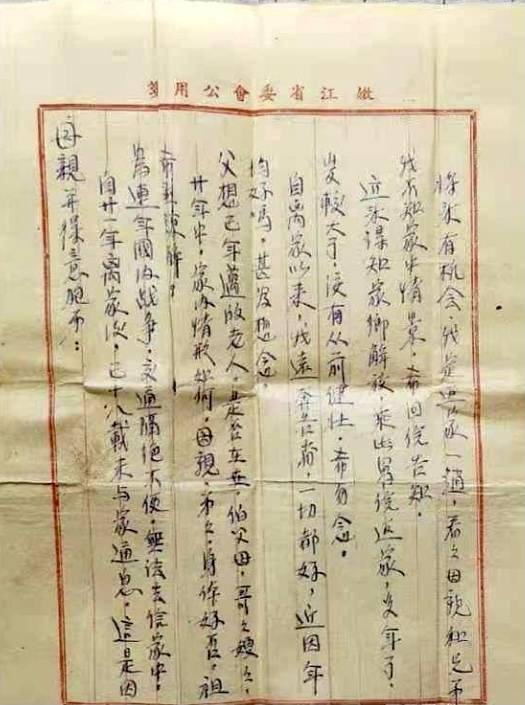 嫩江省委會公用箋
母親并得意胞弟：
自廿一年離家後，已十八載未与家通息，這是因
為連年國內战争，交通隔絕不便，無法去信家中，
希到諒解。
廿年中，家內情形如何，母親，弟々，身体好否，祖
父想已年邁的老人，是否在世，伯父母，哥々嫂々，
均好嗎，甚為想念。
自离家以来，我遠奔各省，一切都好，近因年
岁較大了，没有从前健壮，希勿念。
近来得知家鄉解放，乘此畧信返家，
我不知家中情景，希回信告知。
将来有机会，我定返家一趟，看々母親和兄弟